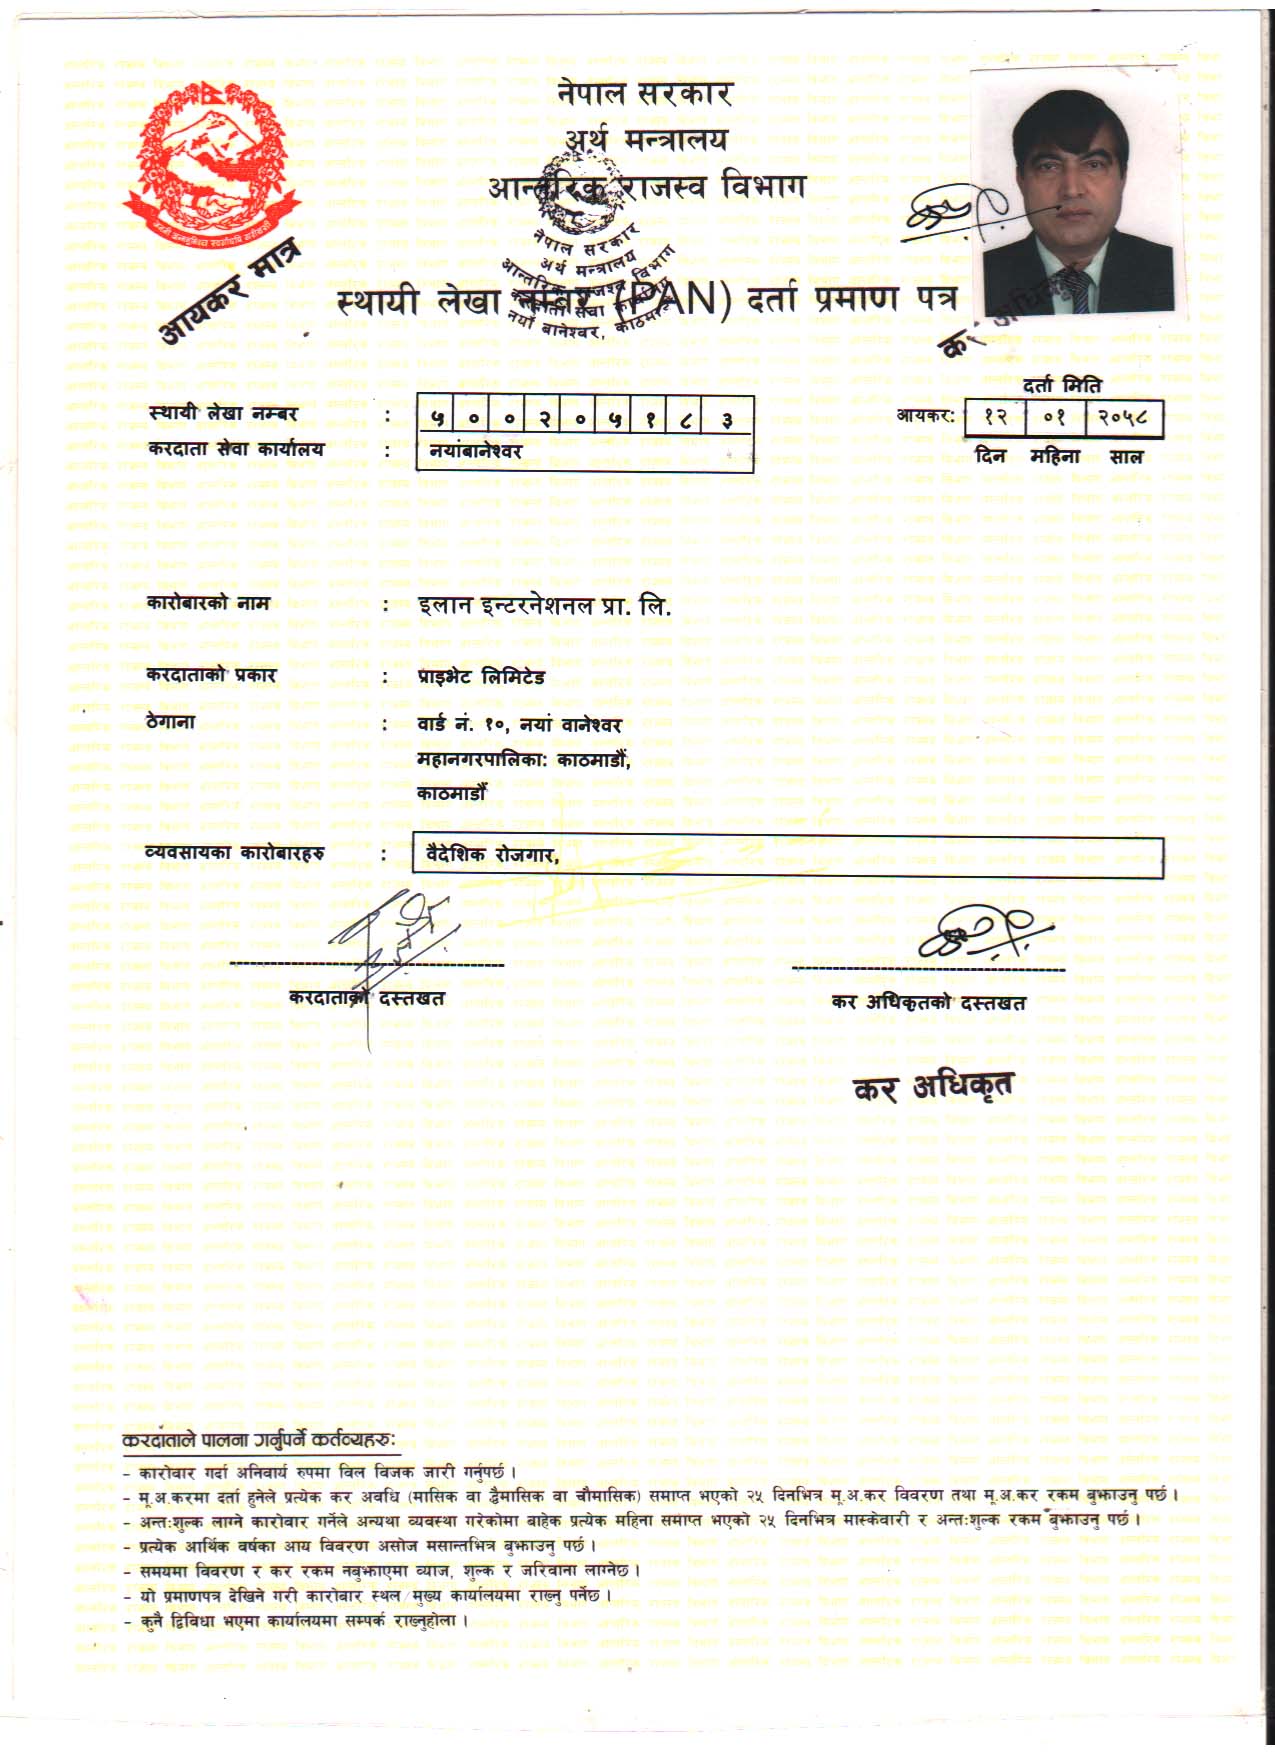 नेपाल सरकार
अर्थ मन्त्रालय
आन्तरिक राजस्व विभाग
आयकर मात्र
नेपाल सरकार
अर्थ मन्त्रालय
आन्तरिक राजश्व विभाग
करदाता सेवा कार्यालय
नयाँ बानेश्वर, काठमाडौं
स्थायी लेखा नम्बर (PAN) दर्ता प्रमाण पत्र
कर अधिकृत
दर्ता मिति
स्थायी लेखा नम्बर : ५ ० ० २ ० ५ १ ८ ३
आयकर: १२ ०१ २०५८
करदाता सेवा कार्यालय : नयांबानेश्वर
दिन महिना साल
कारोबारको नाम : इलान इन्टरनेशनल प्रा. लि.
करदाताको प्रकार : प्राइभेट लिमिटेड
ठेगाना : वार्ड नं. १०, नयां वानेश्वर
महानगरपालिका: काठमाडौं,
काठमाडौं
व्यवसायका कारोबारहरु : वैदेशिक रोजगार,
करदाताको दस्तखत
कर अधिकृतको दस्तखत
कर अधिकृत
करदाताले पालना गर्नुपर्ने कर्तव्यहरु:
- कारोवार गर्दा अनिवार्य रुपमा विल विजक जारी गर्नुपर्छ ।
- मू.अ.करमा दर्ता हुनेले प्रत्येक कर अवधि (मासिक वा द्वैमासिक वा चौमासिक) समाप्त भएको २५ दिनभित्र मू.अ.कर विवरण तथा मू.अ.कर रकम बुझाउनु पर्छ ।
- अन्त:शुल्क लाग्ने कारोवार गर्नेले अन्यथा व्यवस्था गरेकोमा बाहेक प्रत्येक महिना समाप्त भएको २५ दिनभित्र मास्केवारी र अन्त:शुल्क रकम बुझाउनु पर्छ ।
- प्रत्येक आर्थिक वर्षका आय विवरण असोज मसान्तभित्र बुझाउनु पर्छ ।
- समयमा विवरण र कर रकम नबुझाएमा व्याज, शुल्क र जरिवाना लाग्नेछ ।
- यो प्रमाणपत्र देखिने गरी कारोबार स्थल/मुख्य कार्यालयमा राख्नु पर्नेछ ।
- कुनै द्विविधा भएमा कार्यालयमा सम्पर्क राख्नुहोला ।